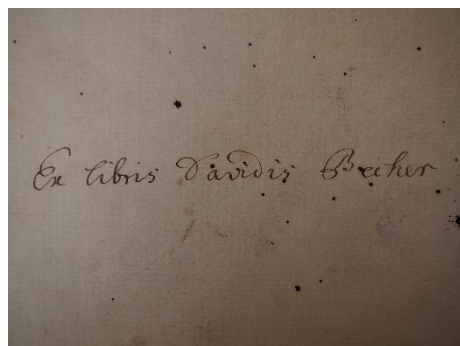 Ex libris Davidis Becher